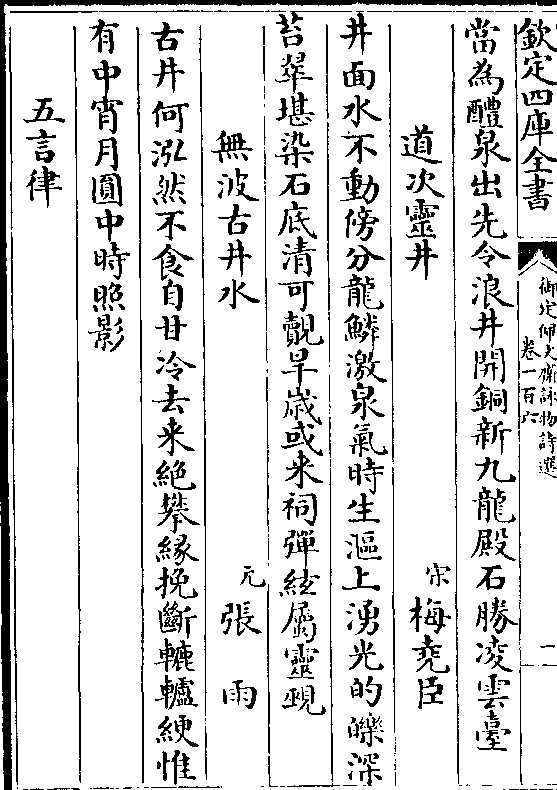 欽定四庫全書
御定佩文齋詠物詩選
卷一百六
一
當為醴泉出先令浪井開銅新九龍殿石勝凌雲臺
道次靈井 宋 梅堯臣
井面水不動傍分龍鱗激泉氣時生漚上湧光的皪深
苔翠堪染石底清可覿旱歲或来祠彈絃屬靈覡
無波古井水 元 張雨
古井何泓然不食自甘冷去来絶攀緣挽斷轆轤綆惟
有中宵月圓中時照影
五言律